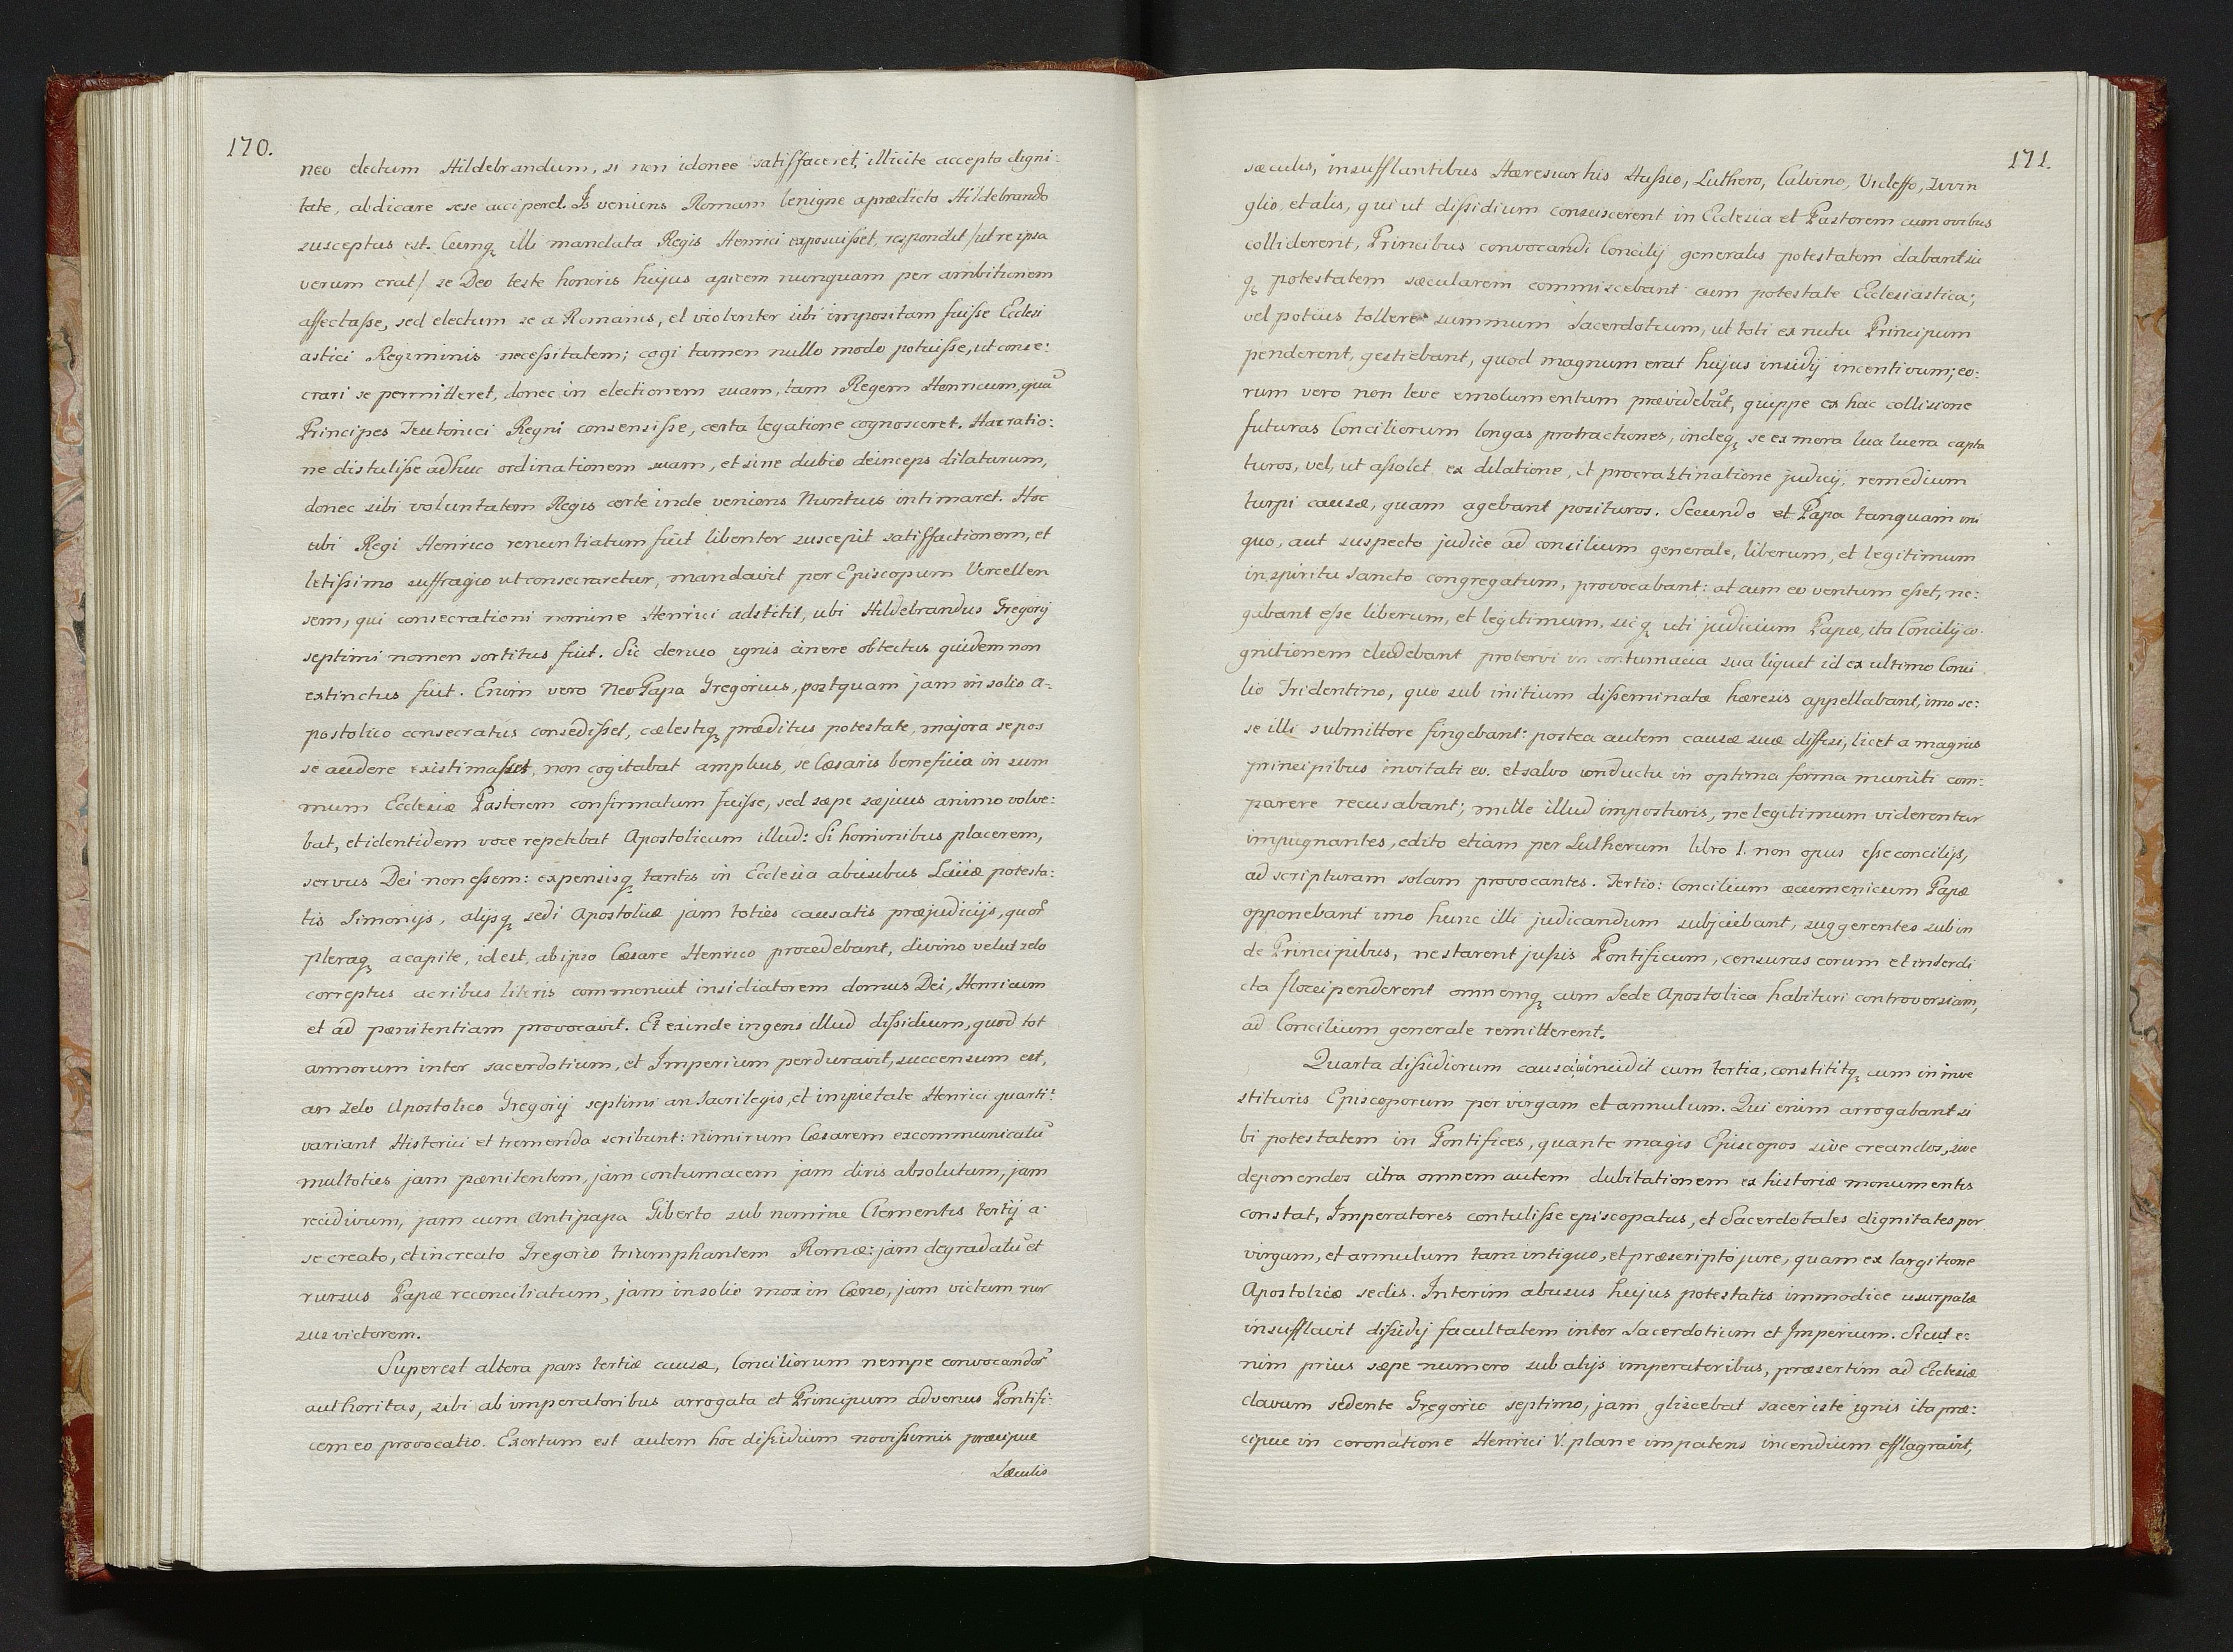 170.
neo electum Hildebrandum, si non idonee satisfaceret, illicite accepta digni:
tate, abdicare sese acciperet. Is veniens Romam benigne a prædicto Hildebrando
susceptus est. Cumq₃ illi mandata Regis Henrici exposuisset, respondit /ut re ipsa
verum erat/ se Deo teste honoris hujus apicem nunquam per ambitionem
affectasse, sed electum se a Romanis, et violenter sibi impositam fuisse Ecclesi
astici Regiminis necessitatem; cogi tamen nullo modo potuisse, ut conse:
crari se permitteret, donec in electionem suam, tam Regem Henricum, quā
Principes Teutonici Regni consensisse, certa legatione cognosceret. Hac ratio:
ne distulisse adhuc ordinationem suam, et sine dubio deinceps dilaturum,
donec sibi voluntatem Regis certe inde veniens Nuntius intimaret. Hoc
ubi Regi Henrico renuntiatum fuit libenter suscepit satisfactionem, et
letissimo suffragio ut consecraretur, mandavit per Episcopum Vercellen
sem, qui consecrationi nomine Henrici adstitit, ubi Hildebrandus Gregorij
septimi nomen sortitus fuit. Sic denuo ignis cinere obtectus quidem non
extinctus fuit. Enim vero Neo Papa Gregorius, postquam jam in solio a:
postolico consecratus consedisset, cælestiq₃ præditus potestate, majora se pos
se audere existimasset, non cogitabat amplius, se Cæsaris beneficia in sum
mum Ecclesiæ Pastorem confirmatum fuisse, sed sæpe sæpius animo volve:
bat, et identidem voce repetebat Apostolicum illud: Si hominibus placerem,
servus Dei non essem: expensisq₃ tantis in Ecclesia abusibus Laicæ potesta:
tis Simonijs, alijsq₃ sedi Apostolicæ jam toties causatis præjudicijs, quor̄
pleraq₃ a capite, id est, ab ipso Cæsare Henrico procedebant, divino velut zelo
correptus acribus literis commonuit insidiatorem domus Dei, Henricum
et ad pænitentiam provocavit. Et exinde ingens illud dissidium, quod tot
annorum inter sacerdotium, et Imperium perduravit, succensum est,
an zelo Apostolico Gregorij septimi an Sacrilegis, et impietate Henrici quarti?
variant Historici et tremenda scribunt: nimirum Cæsarem excommunicatū
multoties jam pænitentem, jam contumacem jam diris absolutum, jam
recidivum, jam cum Antipapa Giberto sub nomine Clementis tertij a
se creato, et increato Gregorio triumphantem Romæ: jam degradatū et
rursus Papæ reconciliatum, jam in solio mox in Cæno, jam victum rur
sus victorem.
Superest altera pars tertiæ causæ, Conciliorum nempe convocandor̄
authoritas, sibi ab imperatoribus arrogata et Principum adversus Pontifi:
cem eo provocatio. Exortum est autem hoc dissidium novissimis præcipue
Sæculis
171.
sæculis, insufflantibus Hæresiarchis Hussio, Luthero, Calvino, Vicleffo, Zwin
glio, et aliis, qui ut dissidium consuscerent in Ecclesia et Pastorem cum ovibus
colliderent, Principibus convocandi Concilij generalis potestatem dabant sic
q₃ potestatem sæcularem commiscebant cum potestate Ecclesiastica;
vel potius tollere summum Sacerdotium, ut toti ex nutu Principum
penderent, gestiebant, quod magnum erat hujus insidij incentivum; eo:
rum vero non leve emolumentum prævidebāt, quippe ex hac collisione
futuras Conciliorum longas protractiones, indeq₃ se ex mora sua lucra capta
turos, vel, ut assolet, ex dilatione, et procrastinatione judicij, remedium
turpi causæ, quam agebant posituros. Secundo et Papa tanquam ini
quo, aut suspecto judice ad consilium generale, liberum, et legitimum
in spiritu Sancto congregatum, provocabant: at cum eo ventum esset, ne:
gabant esse liberum, et legitimum, sicq₃ uti judicium Papæ, ita Concilij co
gnitionem eludebant protervi in contumacia sua liquet id ex ultimo Conci
lio Tridentino, quo sub initium disseminatæ hæresis appellabant, imo se:
se illi submittere fingebant: postea autem causæ suæ diffisi, licet a magnis
principibus invitati eo. et salvo conductu in optima forma muniti com:
parere recusabant; mille illud imposturis, ne legitimum viderentur
impugnantes, edito etiam per Lutherum libro 1. non opus esse concilijs,
ad scripturam solam provocantes. Tertio: Concilium æcumenicum Papæ
opponebant imo hunc illi judicandum subjciebant, suggerentes subin
de Principibus, ne starent jussis Pontificum, censuras eorum et interdi
cta floccipenderent omnemq₃ cum Sede Apostolica habituri controversiam,
ad Concilium generale remitterent.
Quarta dissidiorum causa coincidit cum tertia, constititq₃ cum in inve
stituris Episcoporum per virgam et annulum. Qui enim arrogabant si
bi potestatem in Pontifices, quante magis Episcopos sive creandos, sive
deponendos citra omnem autem dubitationem ex historiæ monumentis
constat, Imperatores contulisse episcopatus, et Sacerdotales dignitates per
virgum, et annulum tam intiquo, et præscripto jure, quam ex largitione
Apostolicæ sedis. Interim abusus hujus potestatis immodice usurpatæ
insufflavit dissidij facultatem inter Sacerdotium et Imperium. Sicut e:
nim prius sæpe numero sub alijs imperatoribus, præsertim ad Ecclesiæ
clavum sedente Gregorio septimo, jam gliscebat sacer iste ignis ita præ:
cipue in coronatione Henrici V. plane impatens incendium efflagravit,